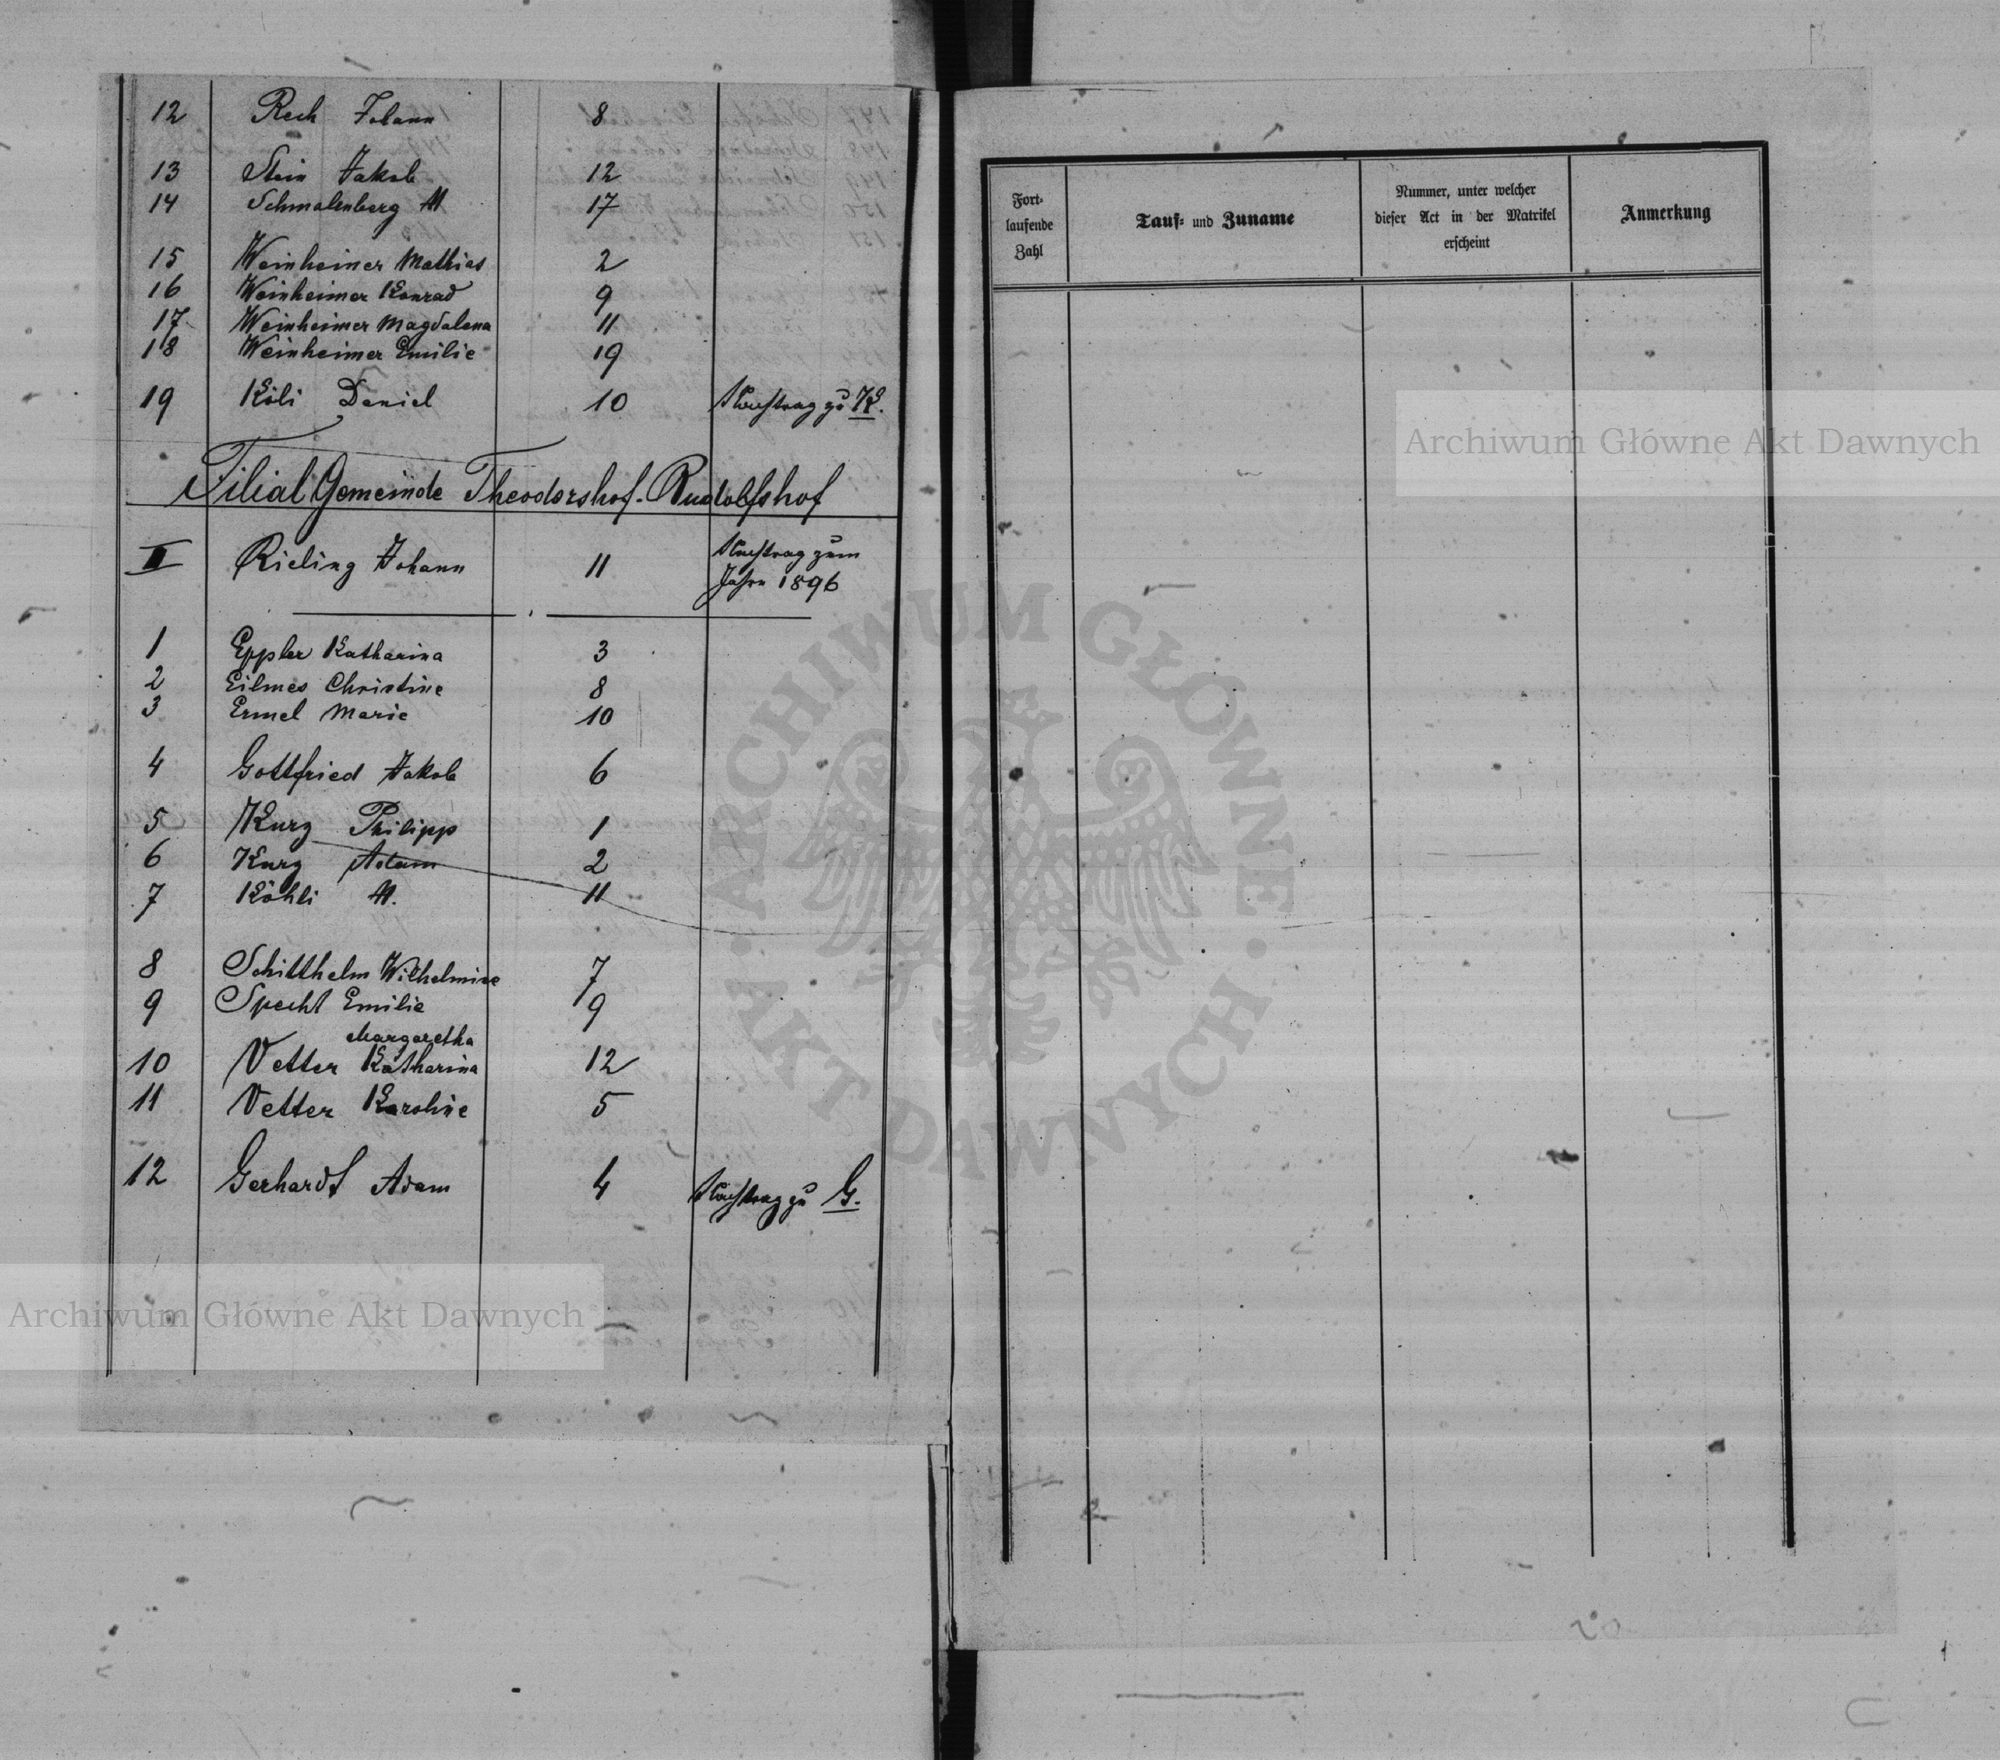 12 Rech Johann 8
13 Stein Jakob 12
14 Schmalenberg M 17
15 Weinheimer Mathias 2
16 Weinheimer Konrad 9
17 Weinheimer Magdalena 11
18 Weinheimer Emilie 19
19 Köli Daniel 10 Nachtrag zu K.
Filial Gemeinde Theodorshof-Rudolfshof
II Rieling Johann 11 Nachtrag zum
Jahre 1896
1 Eppler Katharina 3
2 Eilmes Christine 8
3 Ermel Marie 10
4 Gottfried Jakob 6
5 Kurz Philipp 1
6 Kurz Adam 2
7 Köhli M. 11
8 Schitthelm Wilhelmine 7
9 Specht Emilie 9
Margaretha
10 Vetter Katharina 12
11 Vetter Karoline 5
12 Gerhardt Adam 4 Nachtrag zu G.
Fort-
laufende
Zahl
Tauf- und Zuname
Nummer, unter welcher
dieser Act in der Matrikel
erscheint
Anmerkung
Archiwum Główne Akt Dawnych
ARCHIWUM GŁÓWNE
AKT DAWNYCH
Archiwum Główne Akt Dawnych